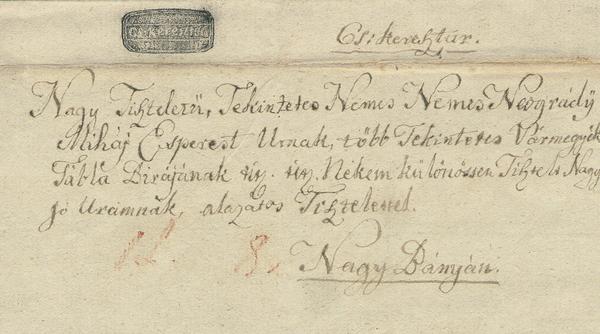 Csikeresztúr
Csikeresztúr.
Nagy Tiszteletü, Tekintetes Nemes Nemes Neogrády
Miháj Esperest Urnak, több Tekintetes Vármegyék
Tábla Birájának üz. üz. Nékem különössen Tisztelt Nagy
jó Uramnak, alazatos Tisztelettel.
8.
Nagy Bányán.